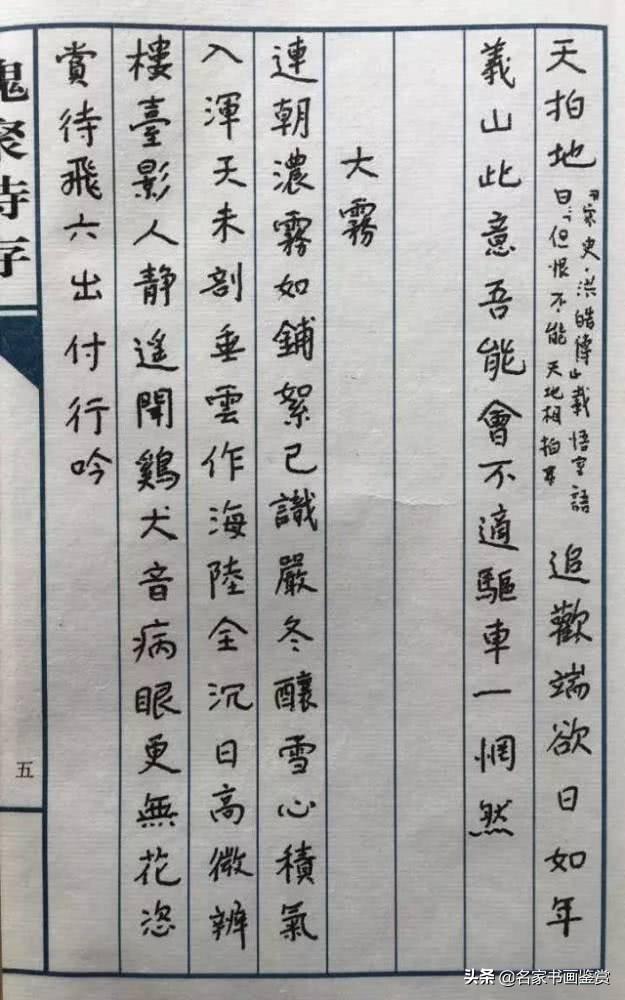 天拍地
《宋史·洪皓傳》載悟室語
曰：但恨不能天地相拍耳
追歡端欲日如年
義山此意吾能會不適驅車一惘然
大霧
連朝濃霧如鋪絮已識嚴冬釀雪心積氣
入渾天未剖垂雲作海陸全沉日高微辨
樓臺影人靜遙聞鷄犬音病眼更無花恣
賞待飛六出付行吟
槐聚詩存
五
头条 @名家书画鉴赏